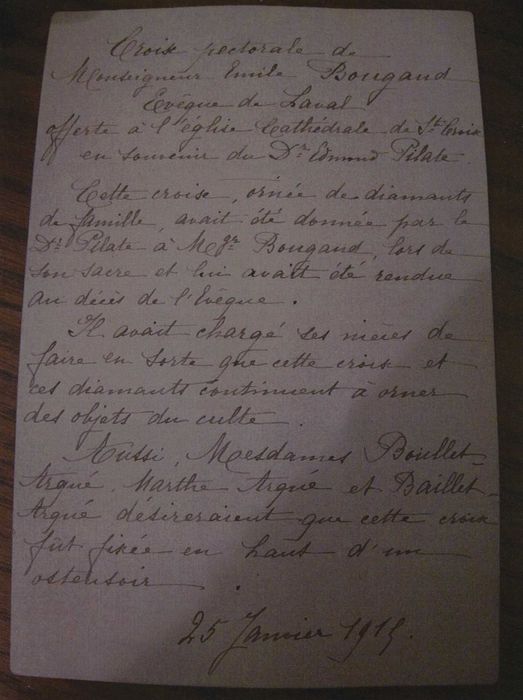 Croix pectorale de
Monseigneur Emile Bougaud
Evêque de Laval
offerte à l'église Cathédrale de Ste Croix
en souvenir du Dr Edmond Pilate.
Cette croix, ornée de diamants
de famille, avait été donnée par le
Dr Pilate à Mgr Bougaud, lors de
son sacre et lui avait été rendue
au décès de l'Evêque.
Il avait chargé ses nièces de
faire en sorte que cette croix et
ces diamants continuent à orner
des objets du culte.
Aussi, Mesdames Boullet-
Argué, Marthe Argué et Baillet-
Argué désireraient que cette croix
fût fixée en haut d'un
ostensoir.
25 Janvier 1915.